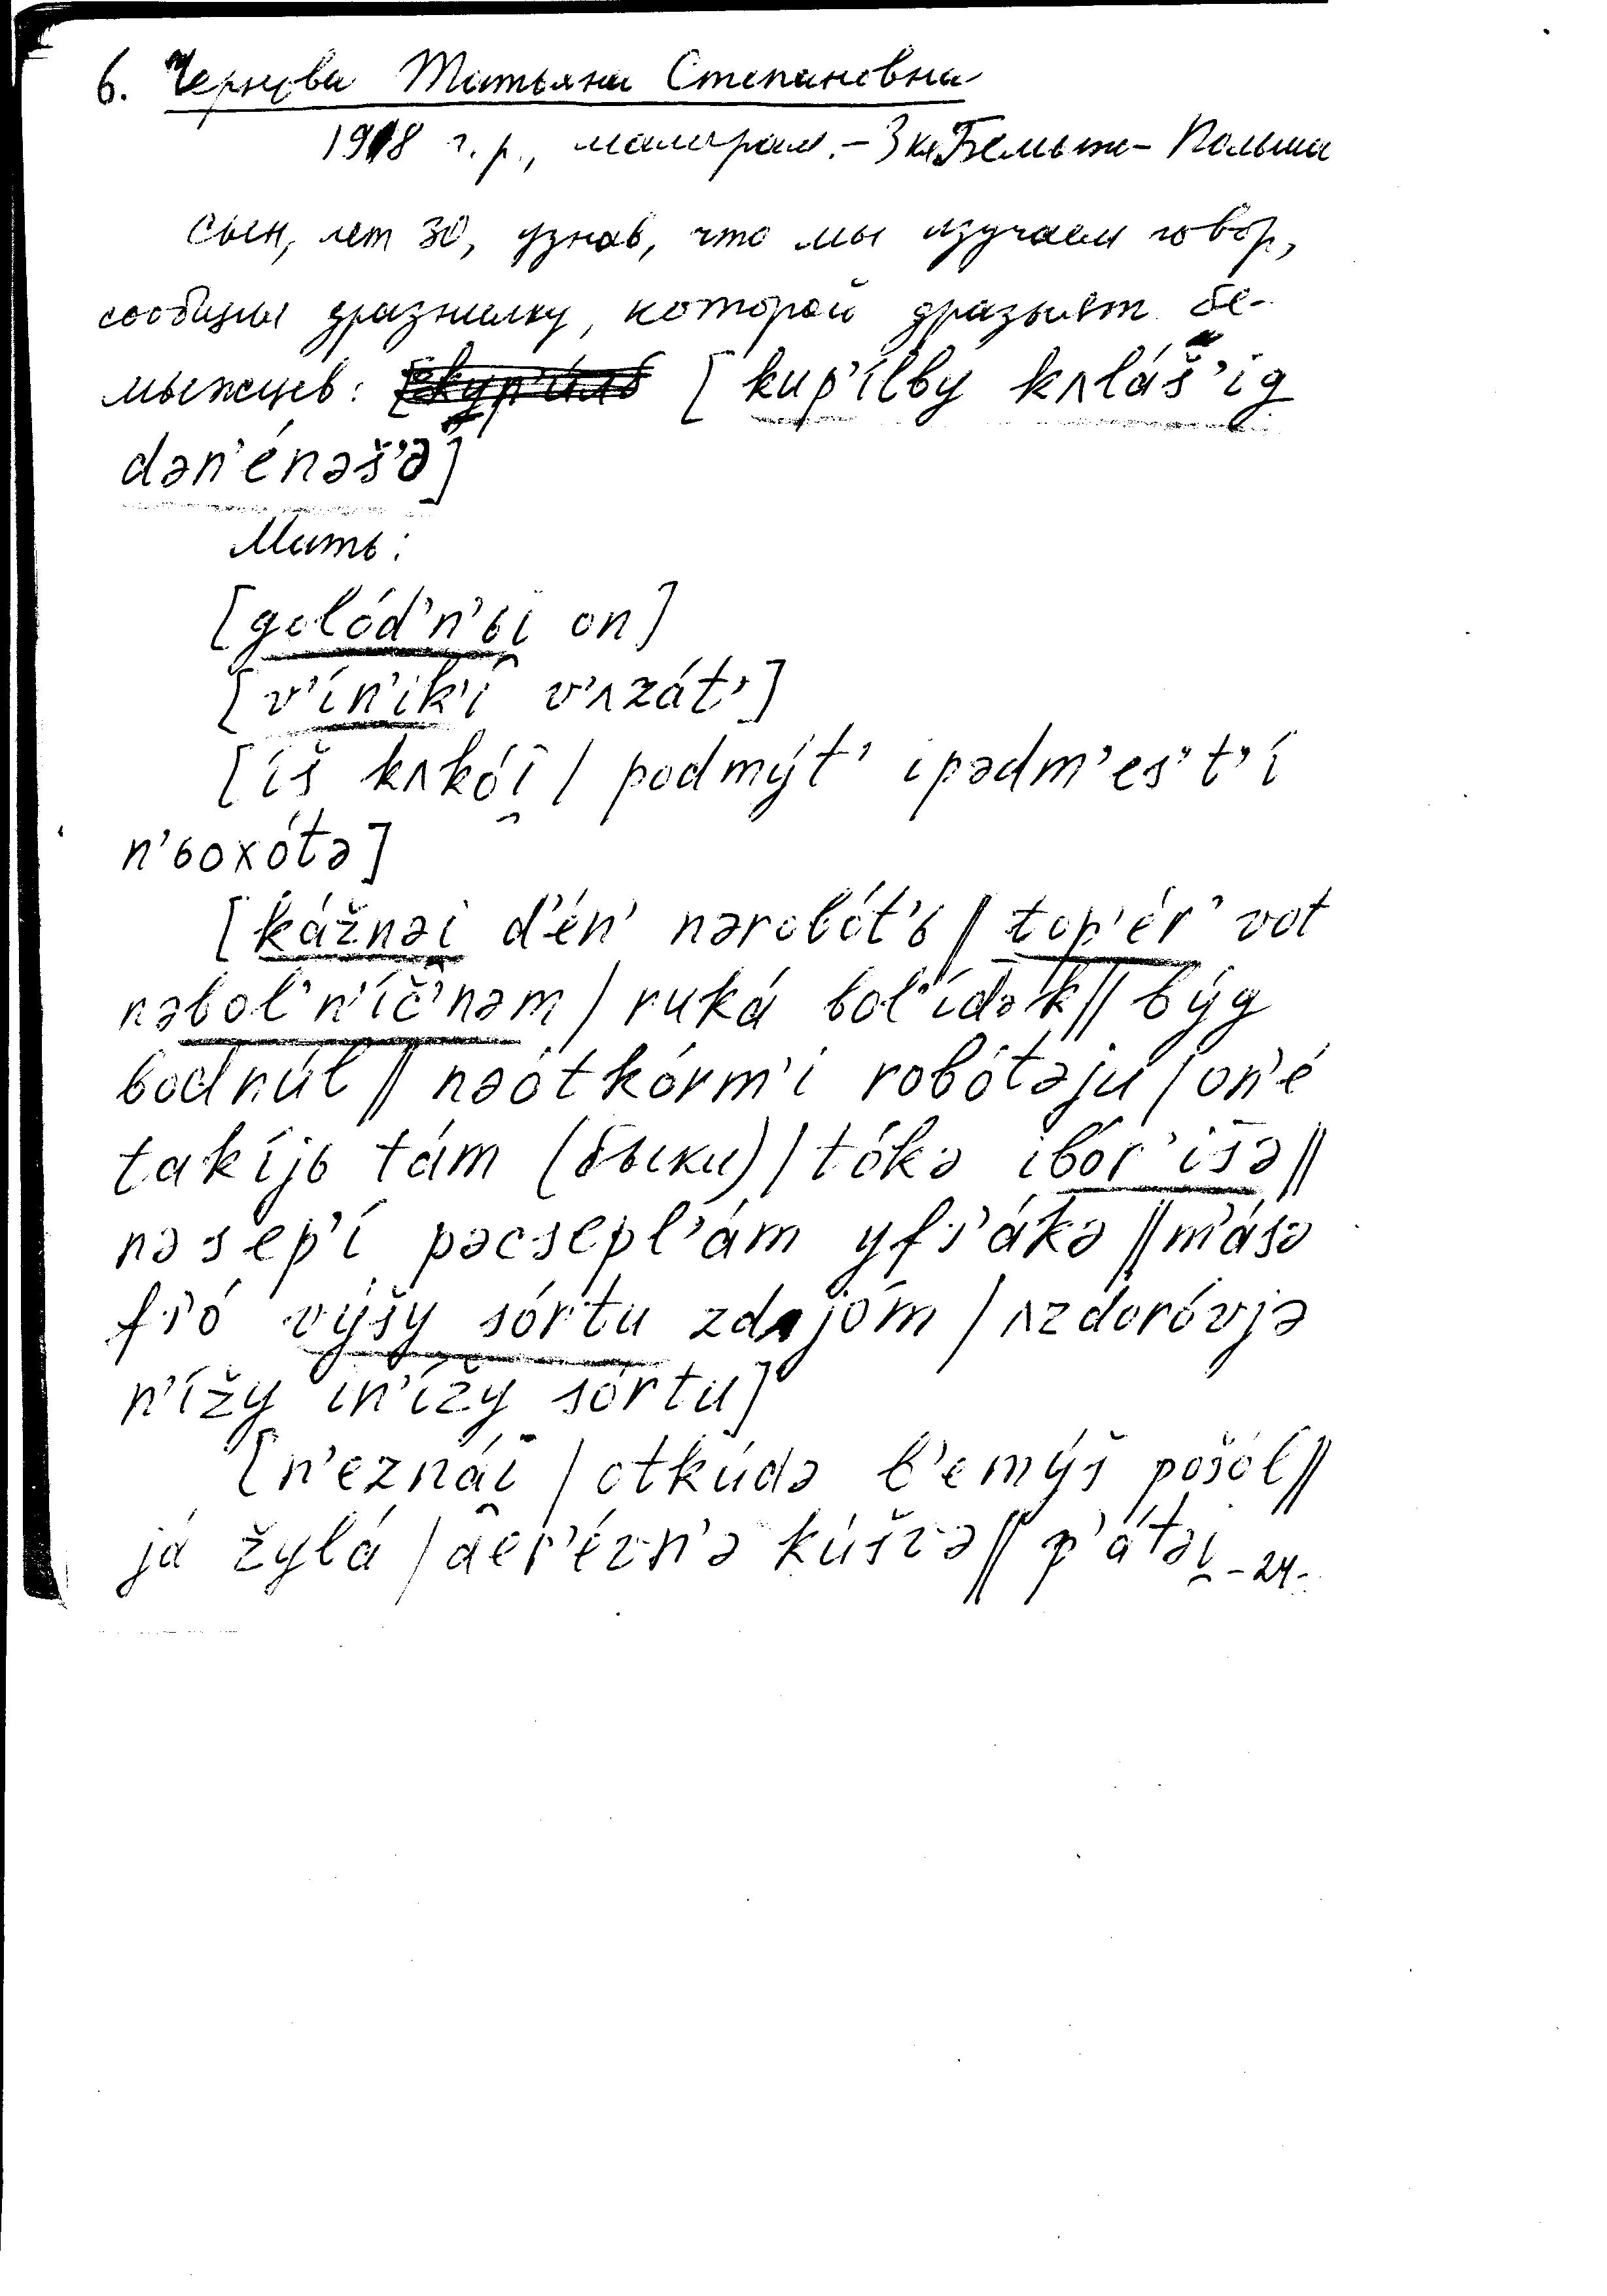 6. Чернова Татьяна Степановна
1918 г.р., малограм. – 3 кл. Бемыж – Польша
сын, лет 30, узнав, что мы изучаем говор,
сообщил дразнилку, которой дразнят бе-
мыжцев: [kup’ílby kʌláš’ig
dən’énəš’ə]
Мать:
[golód’n’ьi̯ on]
[v’ín’ik’i̯ v’ʌzát’]
[íš kʌkói̯ / podmýt’ ipədm’es’t’í
n’ьoxótə]
[kážnəi̯ d’én’ nərobót’ь // top’ér’ vot
nəbol’n’íč’nəm / ruká bol’ídək // býg
bodnúl // nəótkórm’i robótəju / on’é
takíjь tám (быки) / tókə ibór’išə //
nəsep’í pəcsepl’ám yfs’ákə // m’ásə
fs’ó výšy sórtu zdʌjóm / ʌzdoróvjə
n’ížy in’ížy sórtu]
[n’eznái̯ / otkúdə b’emýš pošól //
já žylá / d’er’évn’ə kúšvə // p’átəi̯ -24-